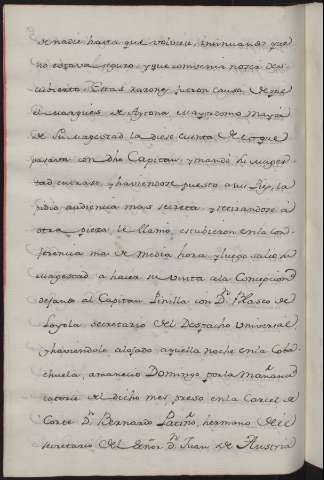 de nadie hasta que volviese, insinuando que
no estava seguro, y que combenia no ser des-
cubierto. Estas razones fueron causa de que
el Marques de Aytona Mayordomo Mayor
de Su Magestad la diese cuenta de lo que
pasava con dho Capitan, y mandó Su Mages-
tad entrase, y haviendose puesto a sus Pies, la
pidio audiencia mas secreta, y retirandose à
otra pieza le llamó, estubieron en la con-
ferencia mas de media hora, y luego salio su
Magestad a hacer su visita a la Concepcion
dejando al Capitan Pinilla con Dn. Blasco de
Loyola secretario del Despacho Universal,
y haviendole alojado aquella noche en la Coba-
chuela, amanecio Domingo por la Mañana
catorce del dicho mes preso en la Carcel de
Corte Dn. Bernardo Patiño, hermano del
secretario del Señor Dn. Juan de Austria